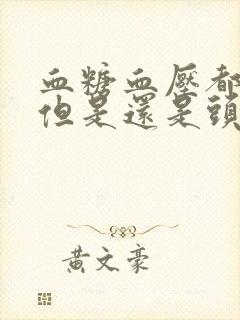 血糖血壓都
但是還是頭
黃文豪